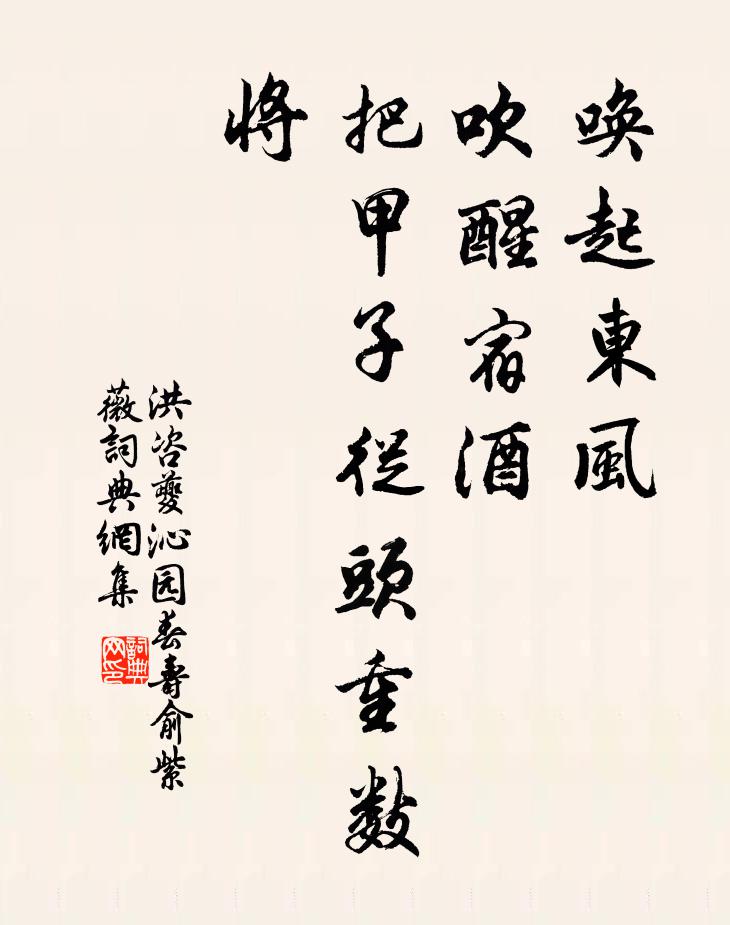 喚起東風
吹醒宿酒
把甲子從頭重數
將
洪咨夔沁园春壽俞紫
薇詞典網集
詞典
网印